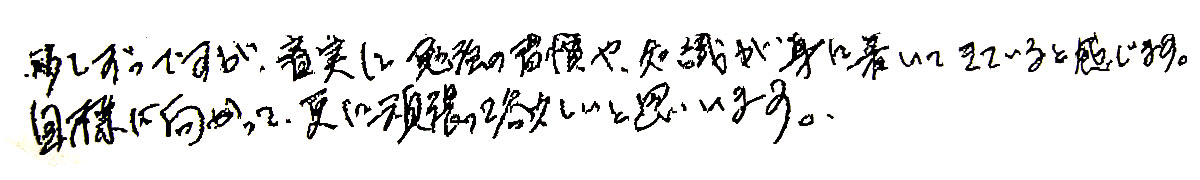 少しずつですが、着実に勉強の習慣や、知識が身に着いてきていると感じます。
目標に向かって、更に頑張って欲しいと思います。